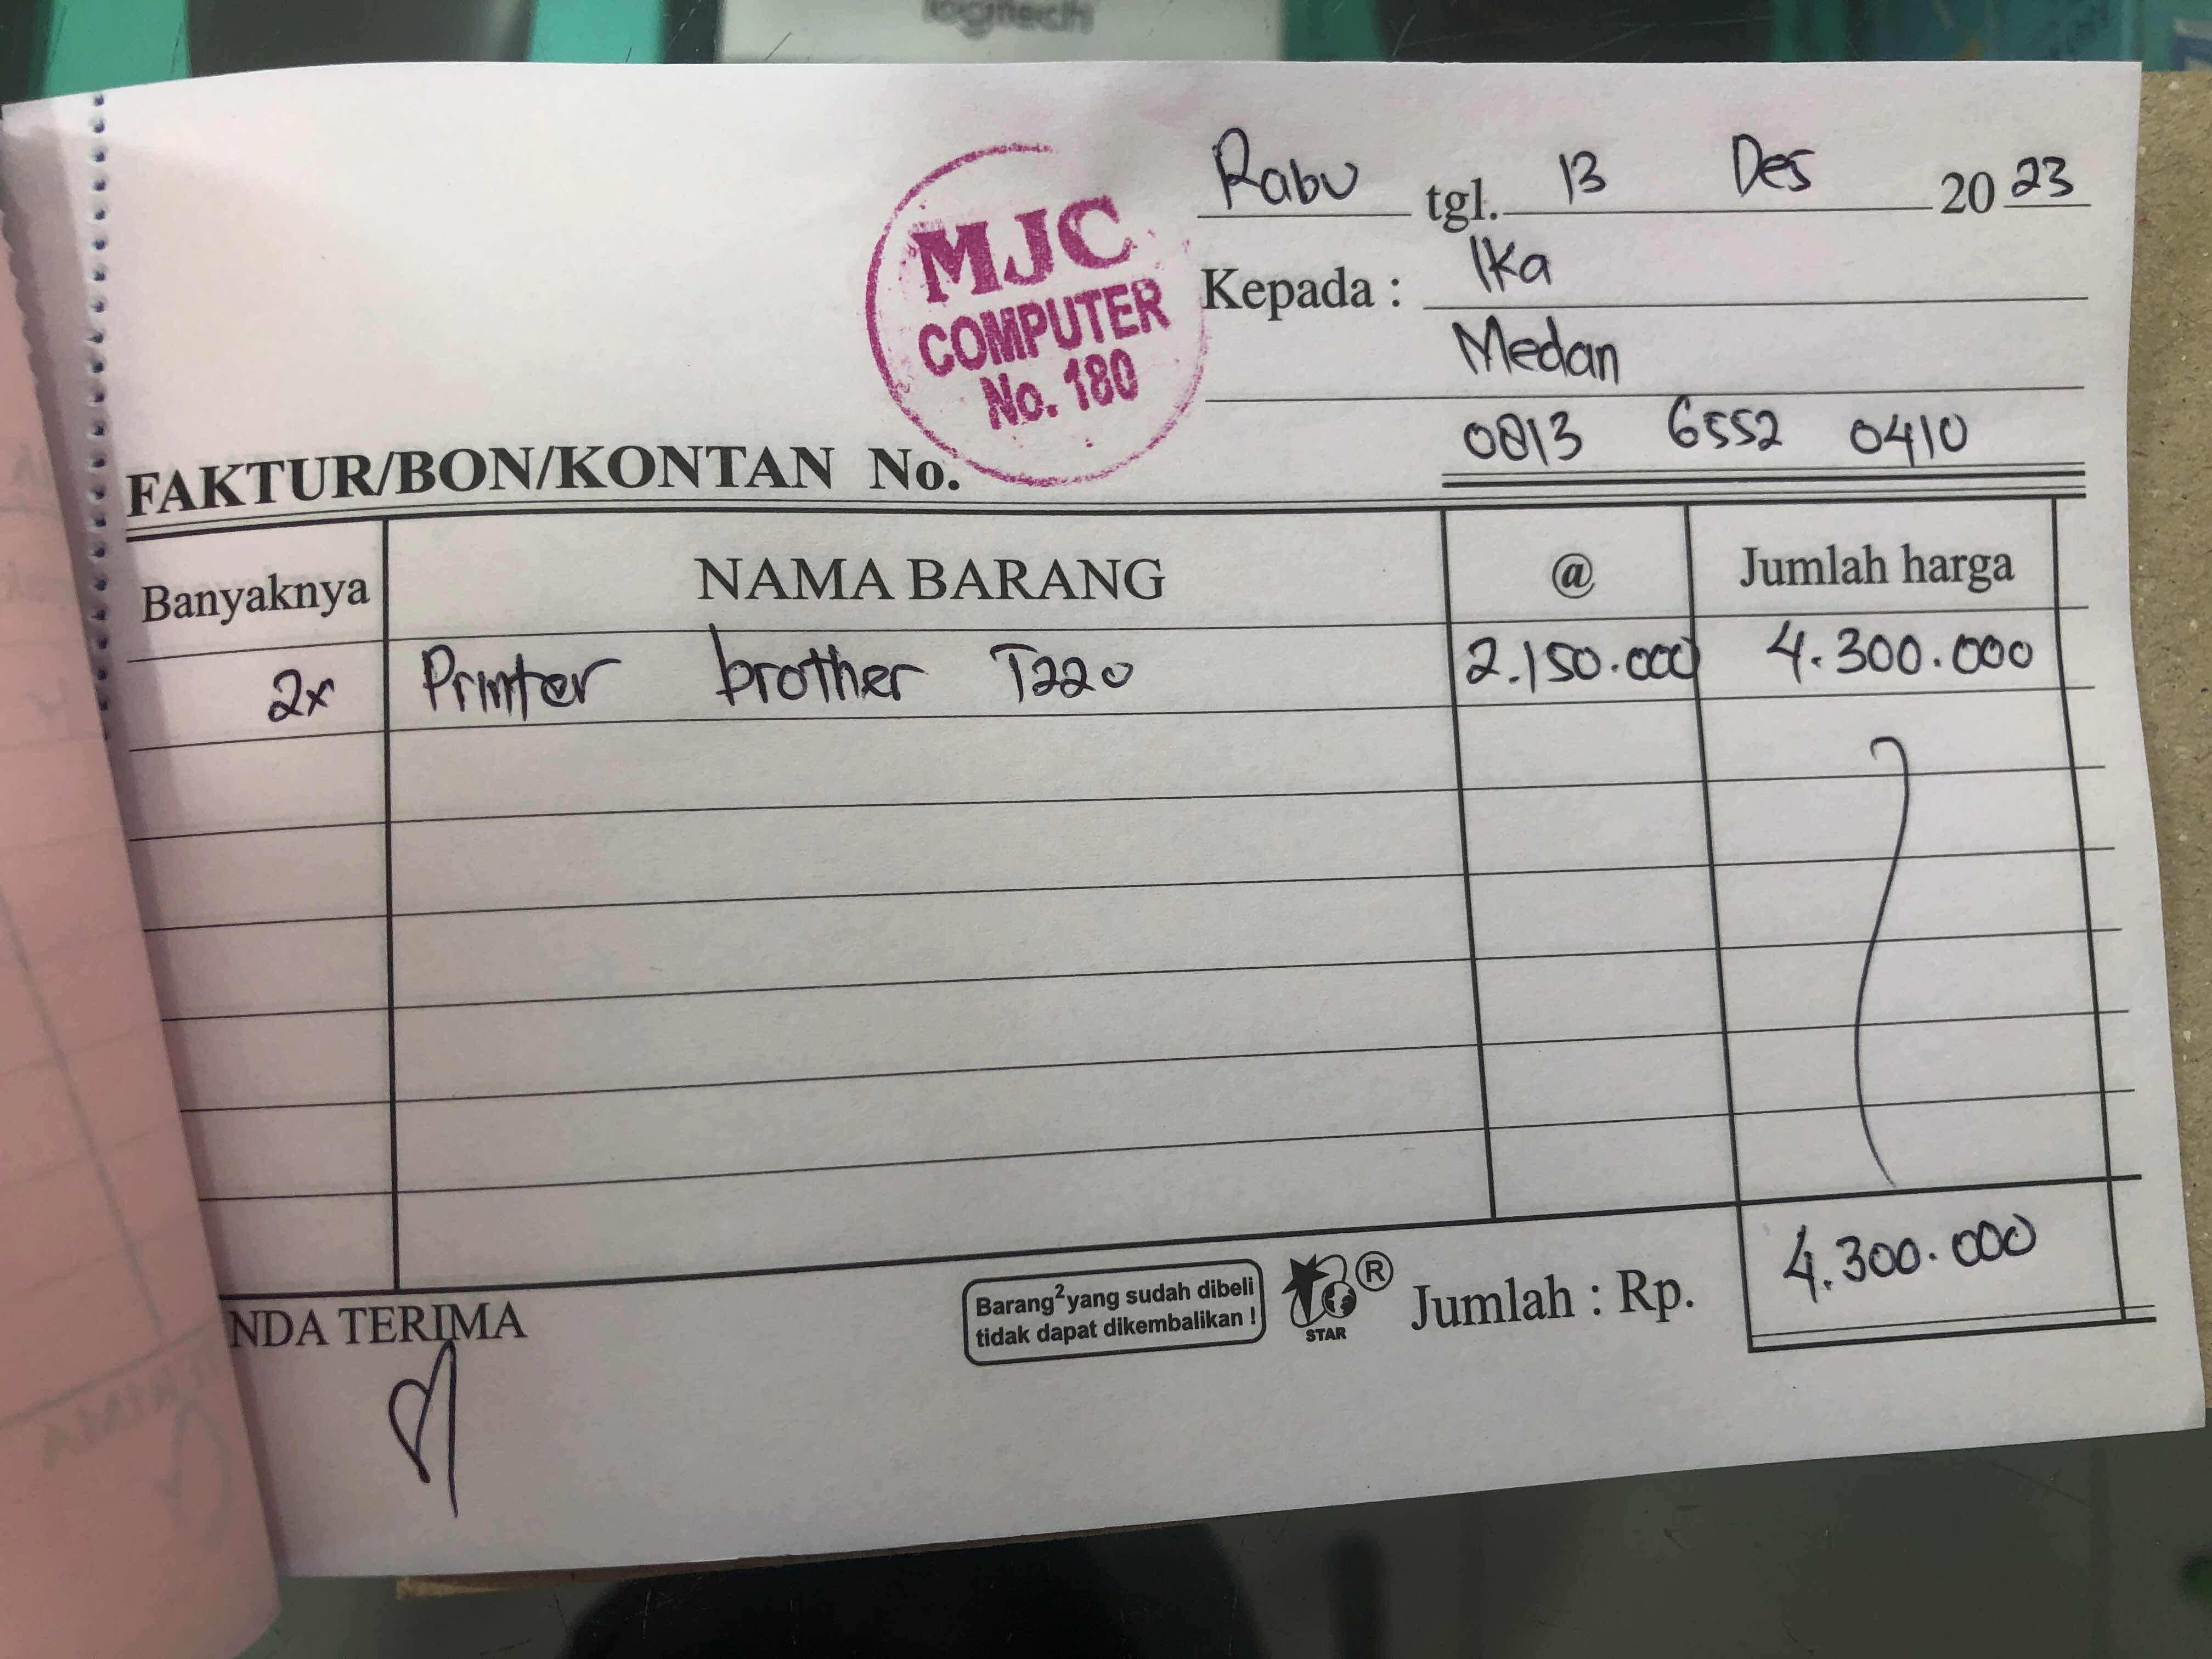 logitech
Rabu tgl. 13 Des 20 23
MJC
COMPUTER
No. 180
Kepada : Ika
Medan
0813 6552 0410
FAKTUR/BON/KONTAN No.
Banyaknya NAMA BARANG @ Jumlah harga
2x Printer brother T220 2.150.000 4.300.000
NDA TERIMA
Barang²yang sudah dibeli
tidak dapat dikembalikan !
STAR
®
Jumlah : Rp. 4.300.000